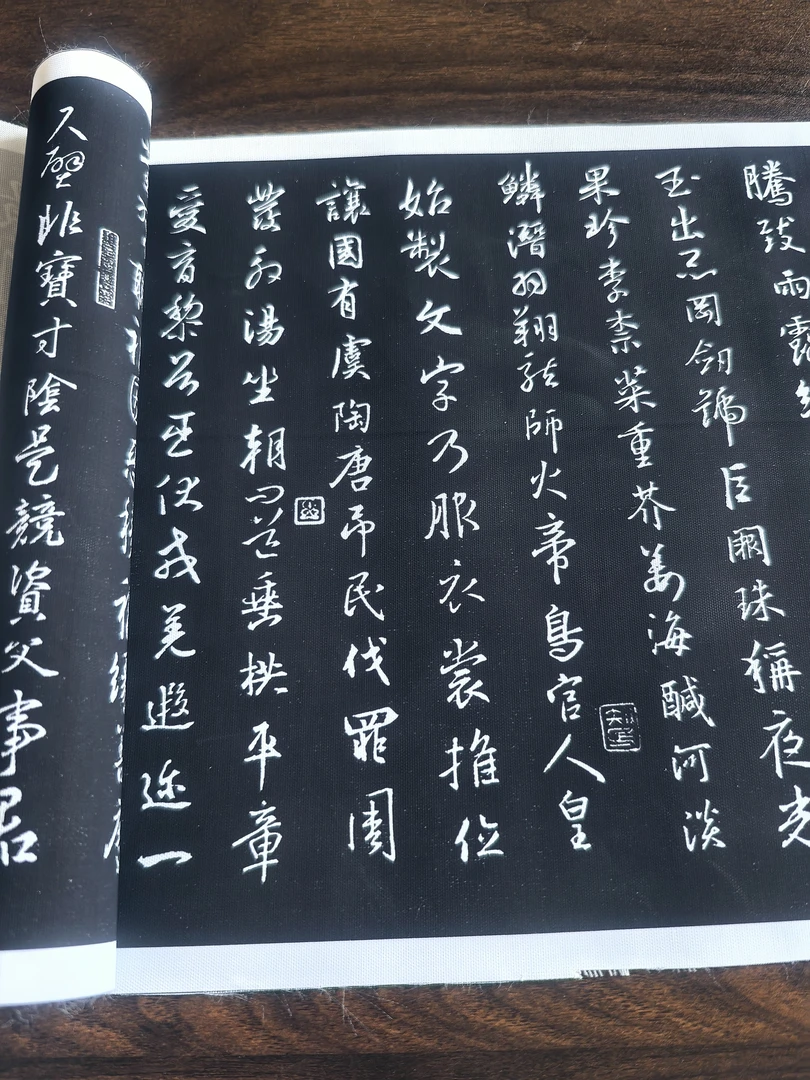 騰致雨露結
玉出崑岡劍號巨闕珠稱夜光
果珍李柰菜重芥薑海鹹河淡
鱗潛羽翔龍師火帝鳥官人皇
始製文字乃服衣裳推位
讓國有虞陶唐吊民伐罪周
發殷湯坐朝問道垂拱平章
愛育黎首臣伏戎羌遐迩一
尺璧非寶寸陰是競資父事君